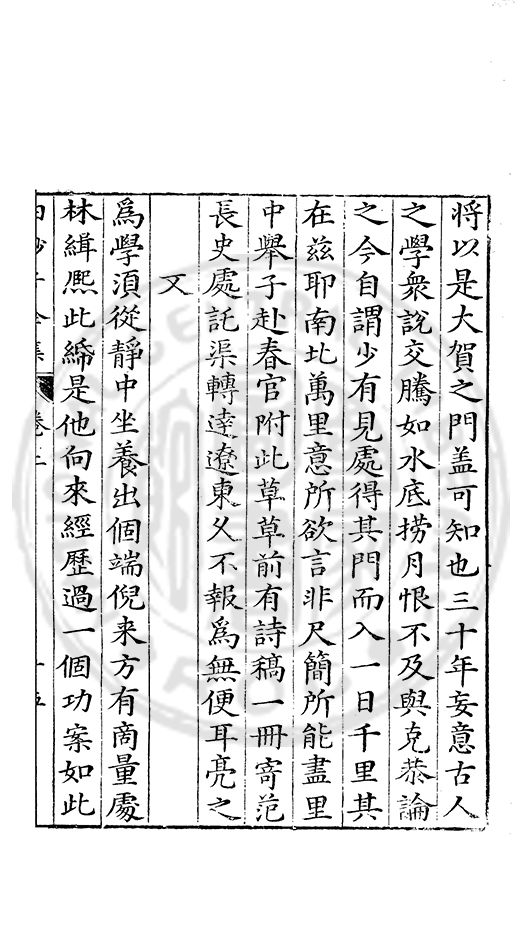 將以是大賀之門蓋可知也三十年妄意古人
之學衆說交騰如水底撈月恨不及與克恭論
之今自謂少有見處得其門而入一日千里其
在兹耶南北萬里意所欲言非尺簡所能盡里
中舉子赴春官附此草草前有詩稿一冊寄范
長史處託渠轉達遼東乆不報爲無便耳亮之
又
爲學湏從靜中坐養出個端倪来方有商量處
林緝熈此綿是他向來經歷過一個功案如此
白沙子全集 卷二 十五